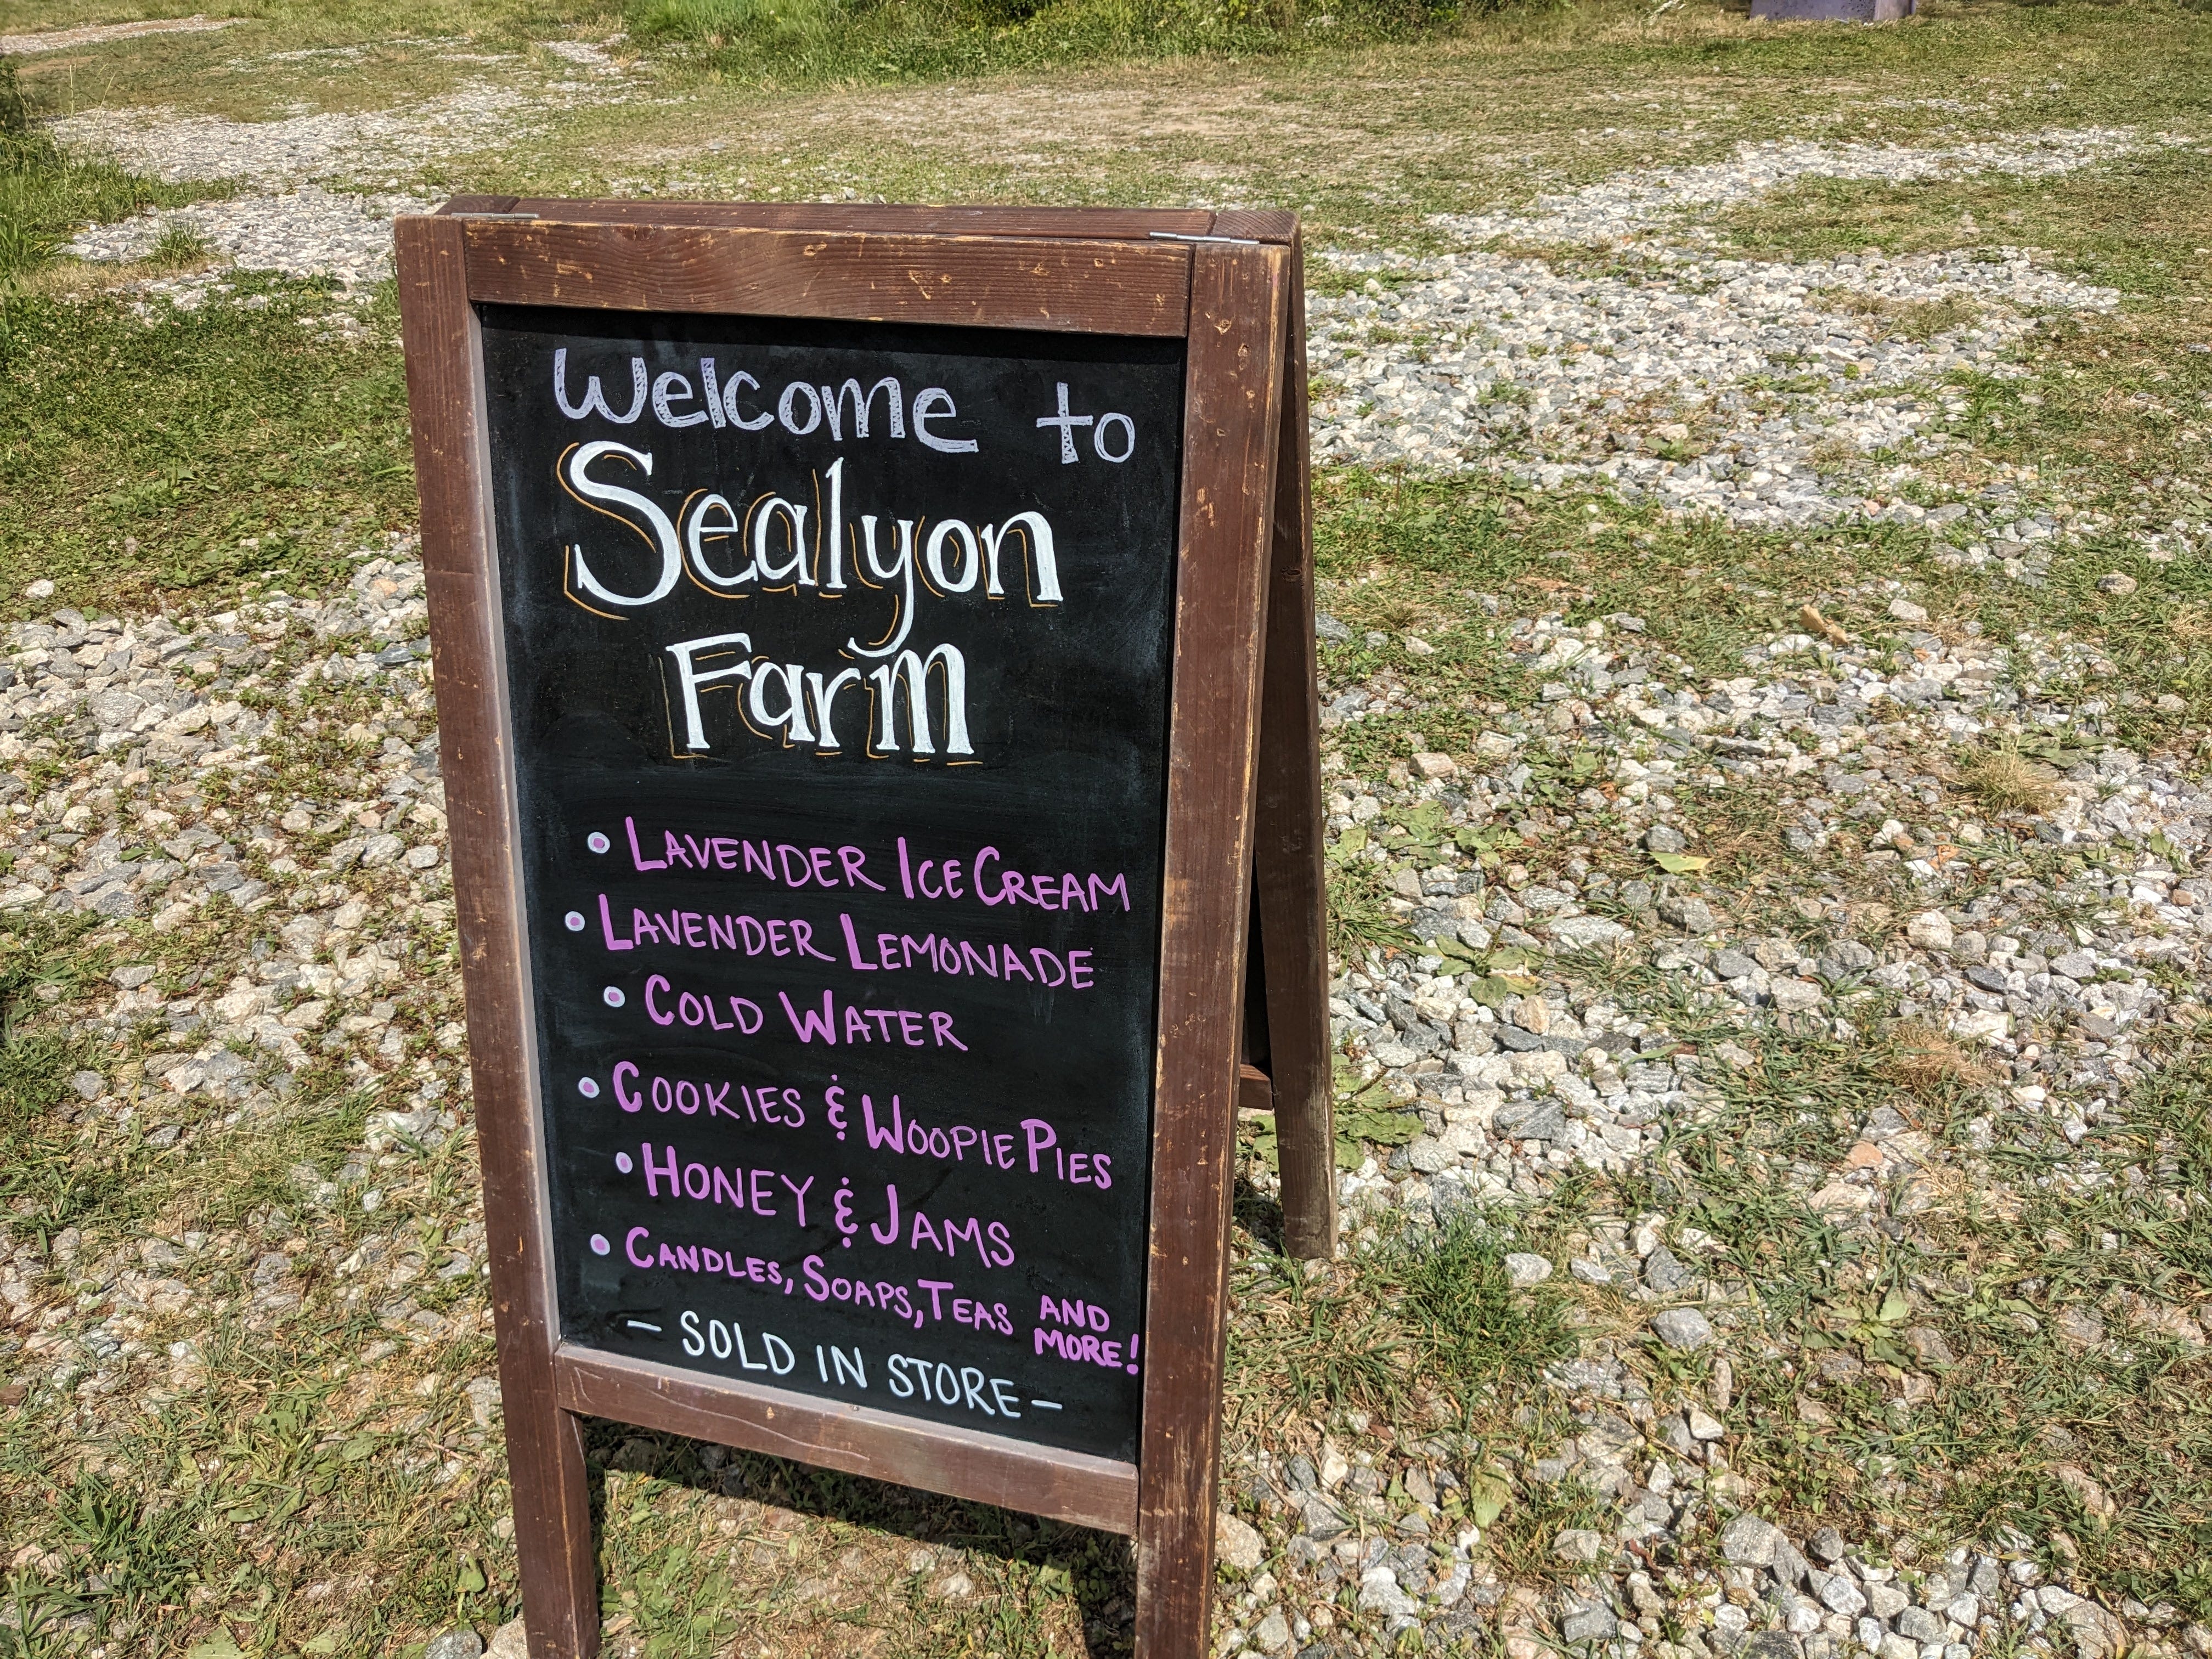 Welcome to
Sealyon
Farm
• LAVENDER ICE CREAM
• LAVENDER LEMONADE
• COLD WATER
• COOKIES & WOOPIE PIES
• HONEY & JAMS
• CANDLES, SOAPS, TEAS AND
MORE!
- SOLD IN STORE -